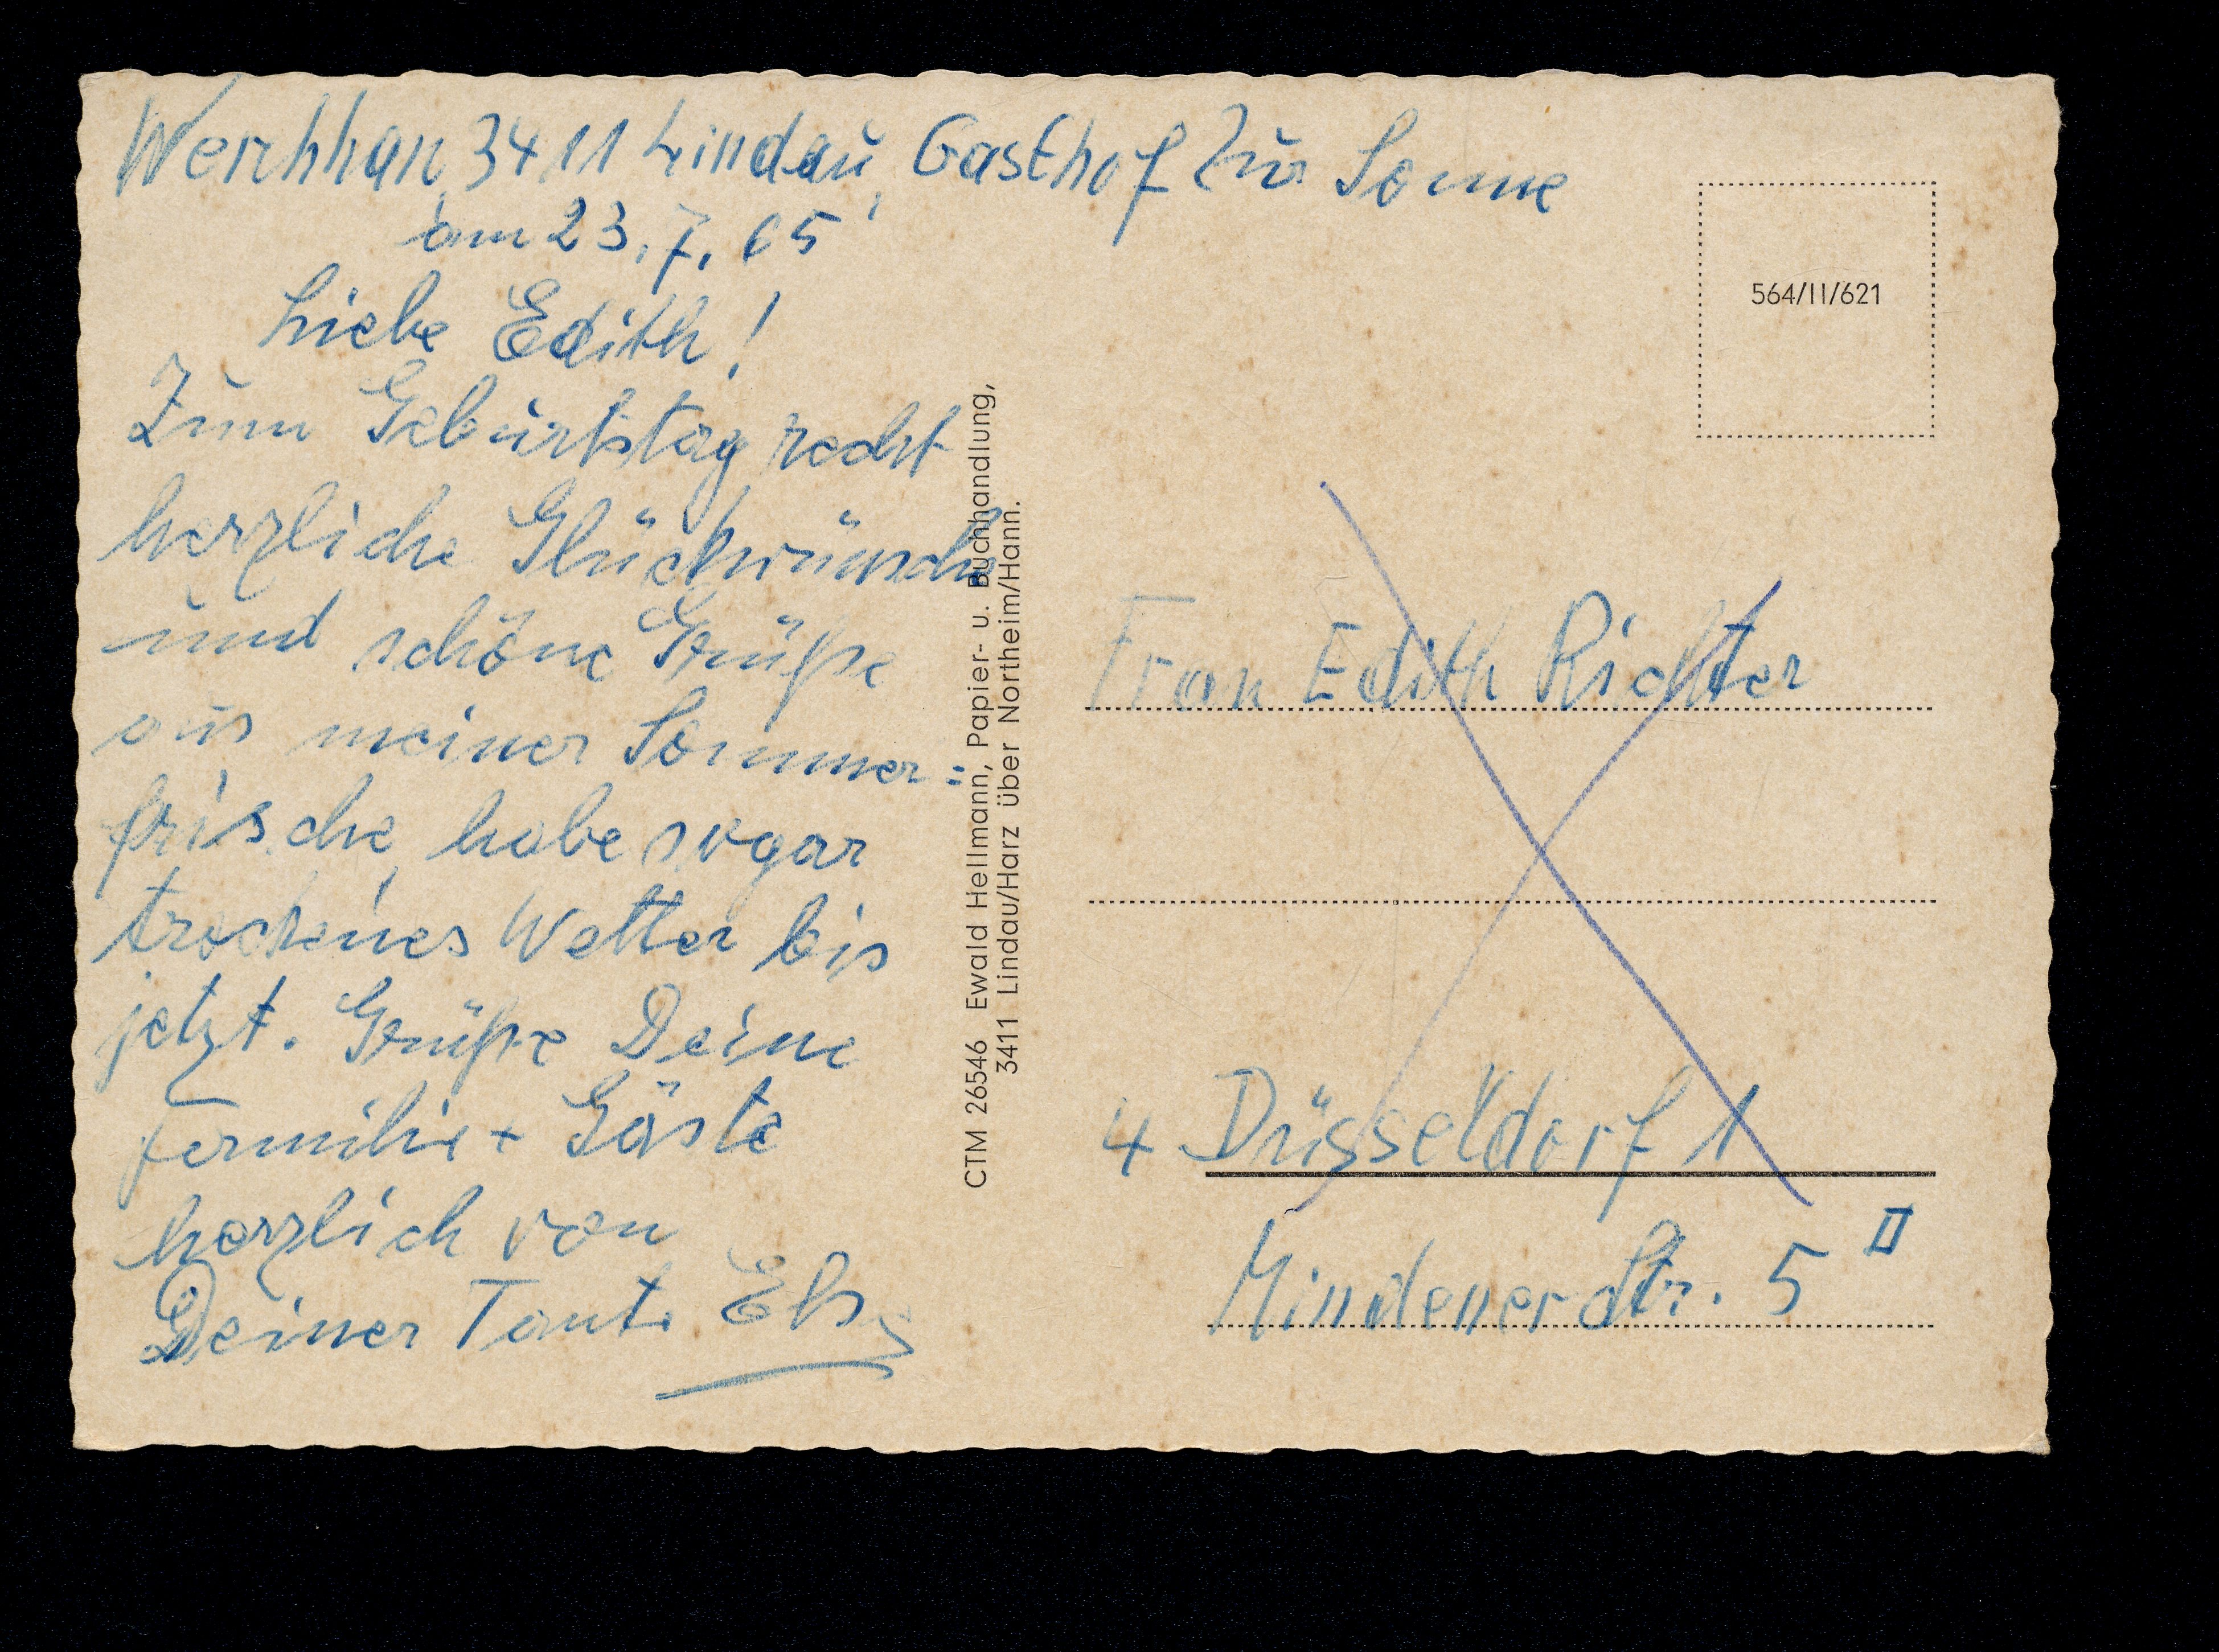 Werhhan, 3411 Lindau, Gasthof Zur Sonne
am 23.7.65
Liebe Edith!
Zum Geburtstag recht
herzliche Glückwünsche
und schöne Grüße
aus meiner Sommer=
frische, habe sogar
trockenes Wetter bis
jetzt. Grüße Deine
Familie + Gäste
herzlich von
Deiner Tante
CTM 26546 Ewald Hellmann, Papier- u. Buchhandlung,
3411 Lindau/Harz über Northeim/Hann.
564/II/621
Frau Edith Richter
4 Düsseldorf 1
Mindener Str. 5 II